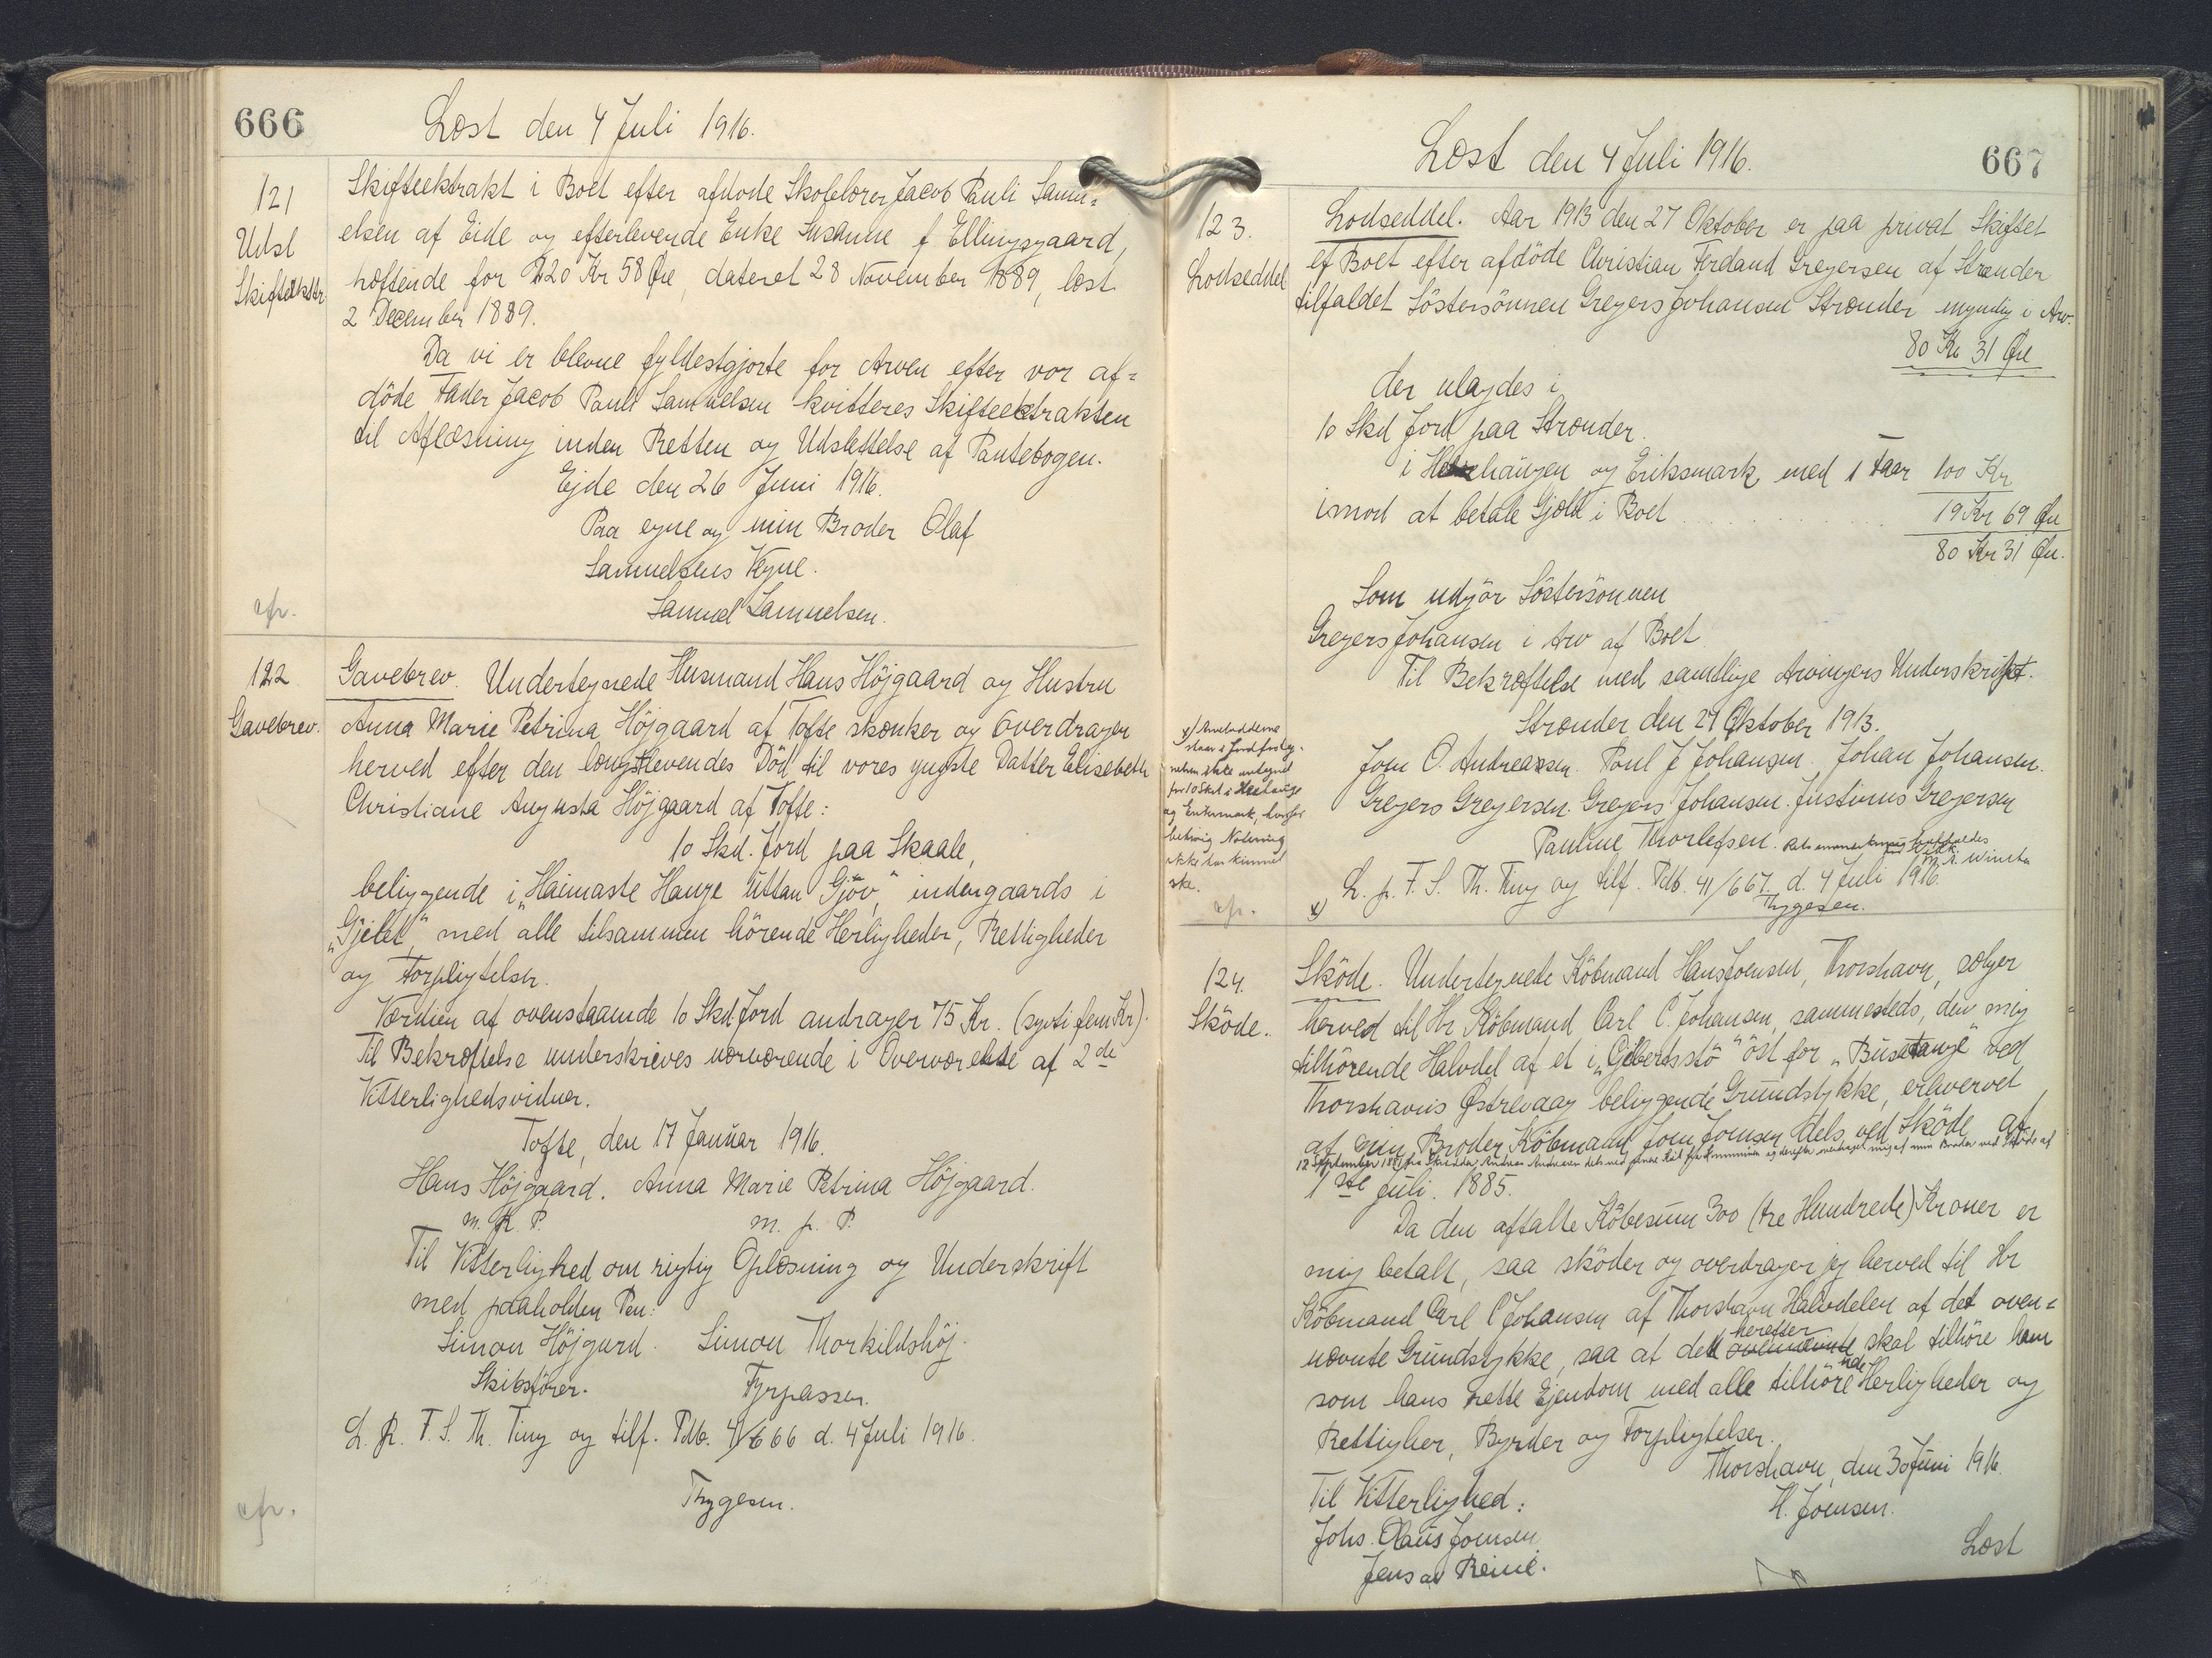 666
Læst den 4 Juli 1916.
121
Udsl
Skifteekstr
Skifteekstrakt i Boet efter afdøde Skolelærer Jacob Pauli Samu=
elsen af Eide og efterlevende Enke Susanne f Ellingsgaard,
hæftende for 220 Kr 58 Øre, dateret 28 November 1889, læst
2 December 1889.
Da vi er blevne fyldestgjorte for Arven efter vor af=
döde Fader Jacob Pauli Samuelsen kvitteres Skifteektrakten
til Aflæsning inden Retten og Udslettelse af Pantebogen.
Ejde den 26 Juni 1916.
Paa egne og min Broder Olaf
Samuelsens Vegne.
Samuel Samuelsen.
cfr.
122
Gavebrev.
Gavebrev. Undertegnede Husmand Hans Höjgaard og Hustru
Anna Marie Petrina Höjgaard af Tofte skænker og overdrager
herved efter den længstlevendes Död til vores yngste Datter Elisebeth
Christiane Augusta Höjgaard af Tofte:
10 Skd. Jord paa Skaale,
beliggende i „Haimaste Hauge üttan Gjöv," indengaards i
„Gjelet," med alle tilsammen hörende Herligheder, Rettigheder
og Forpligtelser.
Værdien af ovenstaaende 10 Skd. Jord andrager 75 Kr. (syvti fem Kr).
Til Bekræftelse underskrives nærværende i Overværelse af 2de
Vitterlighedsvidner.
Tofte, den 17 Januar 1916.
Hans Höjgaard. Anna Marie Petrina Höjgaard.
m. p. P. m. p. P.
Til Vitterlighed om rigtig Oplæsning og Underskrift
med paaholden Pen:
Simon Höjgaard. Simon Thorkildshöj.
Skibsförer. Fyrpasser.
L. p. F. S. Th. Ting og tilf. Pdb. 41/666 d. 4 Juli 1916.
Thygesen.
cfr.
667
Læst den 4 Juli 1916.
123.
Lodseddel
Lodseddel. Aar 1913 den 27 Oktober er paa privat Skiftet
ef Boet efter afdöde Christian Ferdand Gregersen af Strænder
tilfaldet Söstersönnen Gregers Johansen Strænder umyndig i Arv.
80 Kr 31 Øre
der ulagdes i
10 Skd Jord paa Strænder.
i Heahaugen og Eriksmark med 1 Faar 100 Kr
imod at betale Gjæld i Boet 19 Kr 69 Øre
80 Kr 31 Øre.
Som udgör Söstersönnen
Gregers Johansen i Arv af Boet
Til Bekræftelse med samtlige Arvingers Underskrift.
Strænder den 27 Oktober 1913.
Joen O. Andreassen. Poul J Johansen. Johan Johansen.
Gregers Gregersen. Gregers Johansen. Justinus Gregersen
Pauline Thorlefsen.
M. A. Winther
L. p. F. S. Th. Ting og tilf. Pdb. 41/667. d. 4 Juli 1916.
Thygesen.
x)
x) Arveladderne
staar i Jordfortegnelsen ikke antegnet
for 10 Skd i Heahauge
og Eriksmark, hvorfor
Notering
ikke har kunnet
ske.
cfr.
124.
Sköde.
Sköde. Undertegnede Köbmand Hans Joensen, Thorshavn, sælger
herved til Hr Köbmand Carl C. Johansen, sammesteds, den mig
tilhörende Halvdel af et i „Gilbertsstö" öst for „Büsetange" ved
Thorshavns Østrevaag beliggende Grundstykke, erhvervet
af min Broder Köbmand Joen Joensen dels ved Sköde af
12 September fra Andreas Andreasen dels ved Köb fra Kommunen og derefter overdraget mig af min Broder ved Sköde af
1ste Juli 1885.
Da den aftalte Köbesum 300 (tre Hundrede) Kroner er
mig betalt, saa sköder og overdrager jeg herved til Hr
Köbmand Carl C Johansen af Thorshavn Halvdelen af det oven=
nævnte Grundstykke, saa at det ovennævnte herefter skal tilhöre ham
som hans rette Ejendom med alle tilhörende Herligheder og
Rettigher, Byrder og Forpligtelser.
Thorshavn, den 30 Juni 1916.
H. Joensen.
Til Vitterlighed:
Johs. Olaus Joensen
Jens av Reine.
Læst